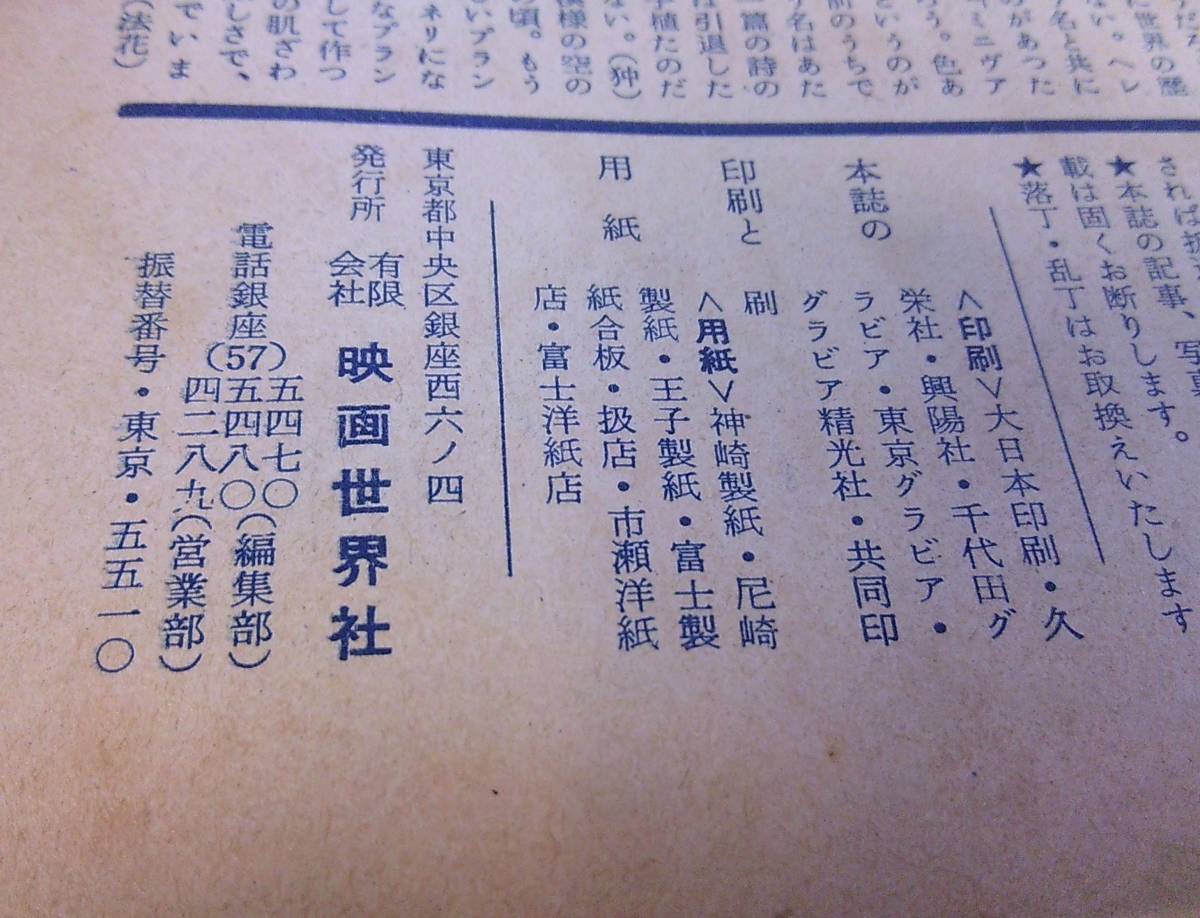 に世界の
ない。ヘレ
名と共に
ミニヴア
のがあった
う。色あ
というのが
詩のうちで
名はあた
一篇の詩の
は引退した
植たのだ
ない。(狆)
模様の空の
の頃。もう
いプラン
ネリにな
なプラン
して作つ
の肌ざわ
しさで、
でいま
(法花)
★本誌の記事、写真
載は固くお断りします。
★落丁・乱丁はお取換えいたします
本誌の
印刷と
用紙
<印刷>大日本印刷・久
栄社・興陽社・千代田グ
ラビア・東京グラビア・
グラビア精光社・共同印
刷
<用紙>神崎製紙・尼崎
製紙・王子製紙・富士製
紙合板・扱店・市瀬洋紙
店・富士洋紙店
東京都中央区銀座西六ノ四
発行所 有限会社 映画世界社
電話銀座(57)五四七〇
五四八〇(編集部)
四二八九(営業部)
振替番号・東京・五五一〇